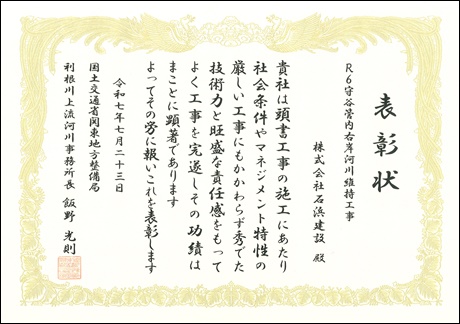 表彰状
R6守谷管内右岸河川維持工事
株式会社石浜建設 殿
貴社は頭書工事の施工にあたり
社会条件やマネジメント特性の
厳しい工事にもかかわらず秀でた
技術力と旺盛な責任感をもって
よく工事を完遂しその功績は
まことに顕著であります
よってその労に報いこれを表彰します
令和七年七月二十三日
国土交通省関東地方整備局
利根川上流河川事務所長 飯野 光則